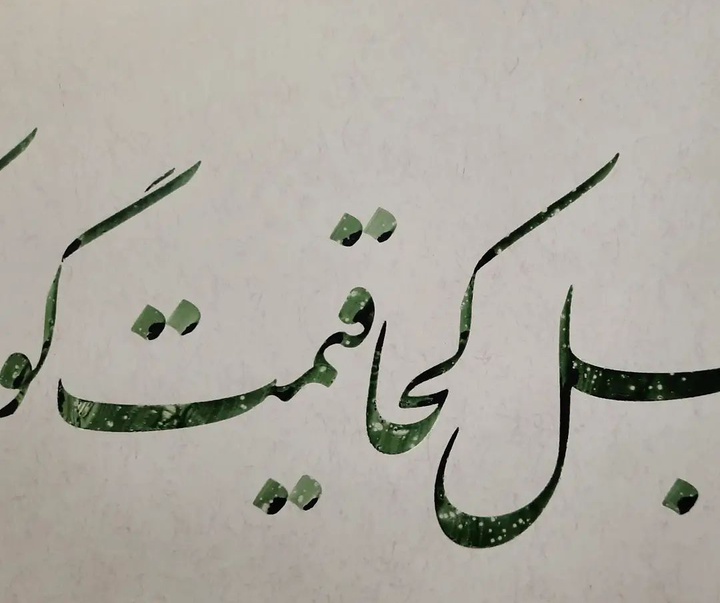 بل کجا قیمت گو